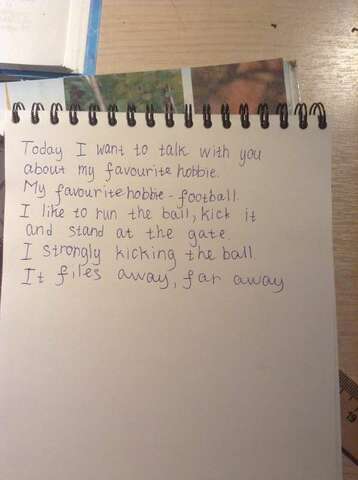 Today I want to talk with you
about my favourite hobbie.
My favourite hobbie - football.
I like to run the ball, kick it
and stand at the gate.
I strongly kicking the ball.
It files away, far away